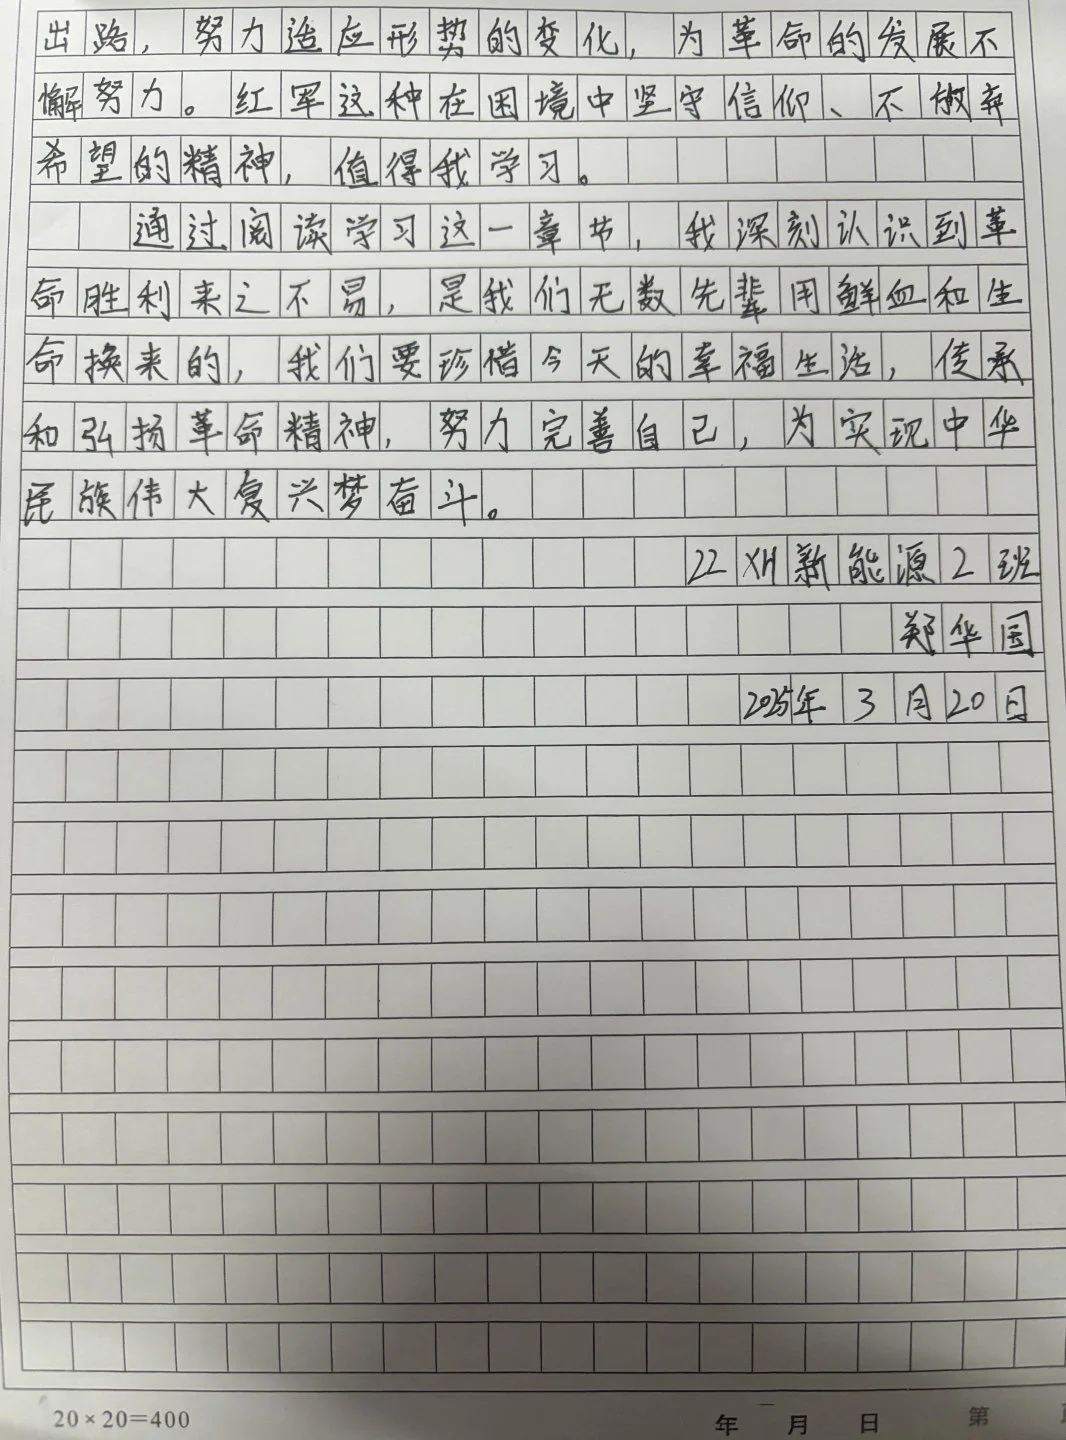 出路，努力适应形势的变化，为革命的发展不
懈努力。红军这种在困境中坚守信仰、不放弃
希望的精神，值得我学习。
通过阅读学习这一章节，我深刻认识到革
命胜利来之不易，是我们无数先辈用鲜血和生
命换来的，我们要珍惜今天的幸福生活，传承
和弘扬革命精神，努力完善自己，为实现中华
民族伟大复兴梦奋斗。
22XH新能源2班
郑华国
2025年3月20日
20×20=400
年 月 日 第